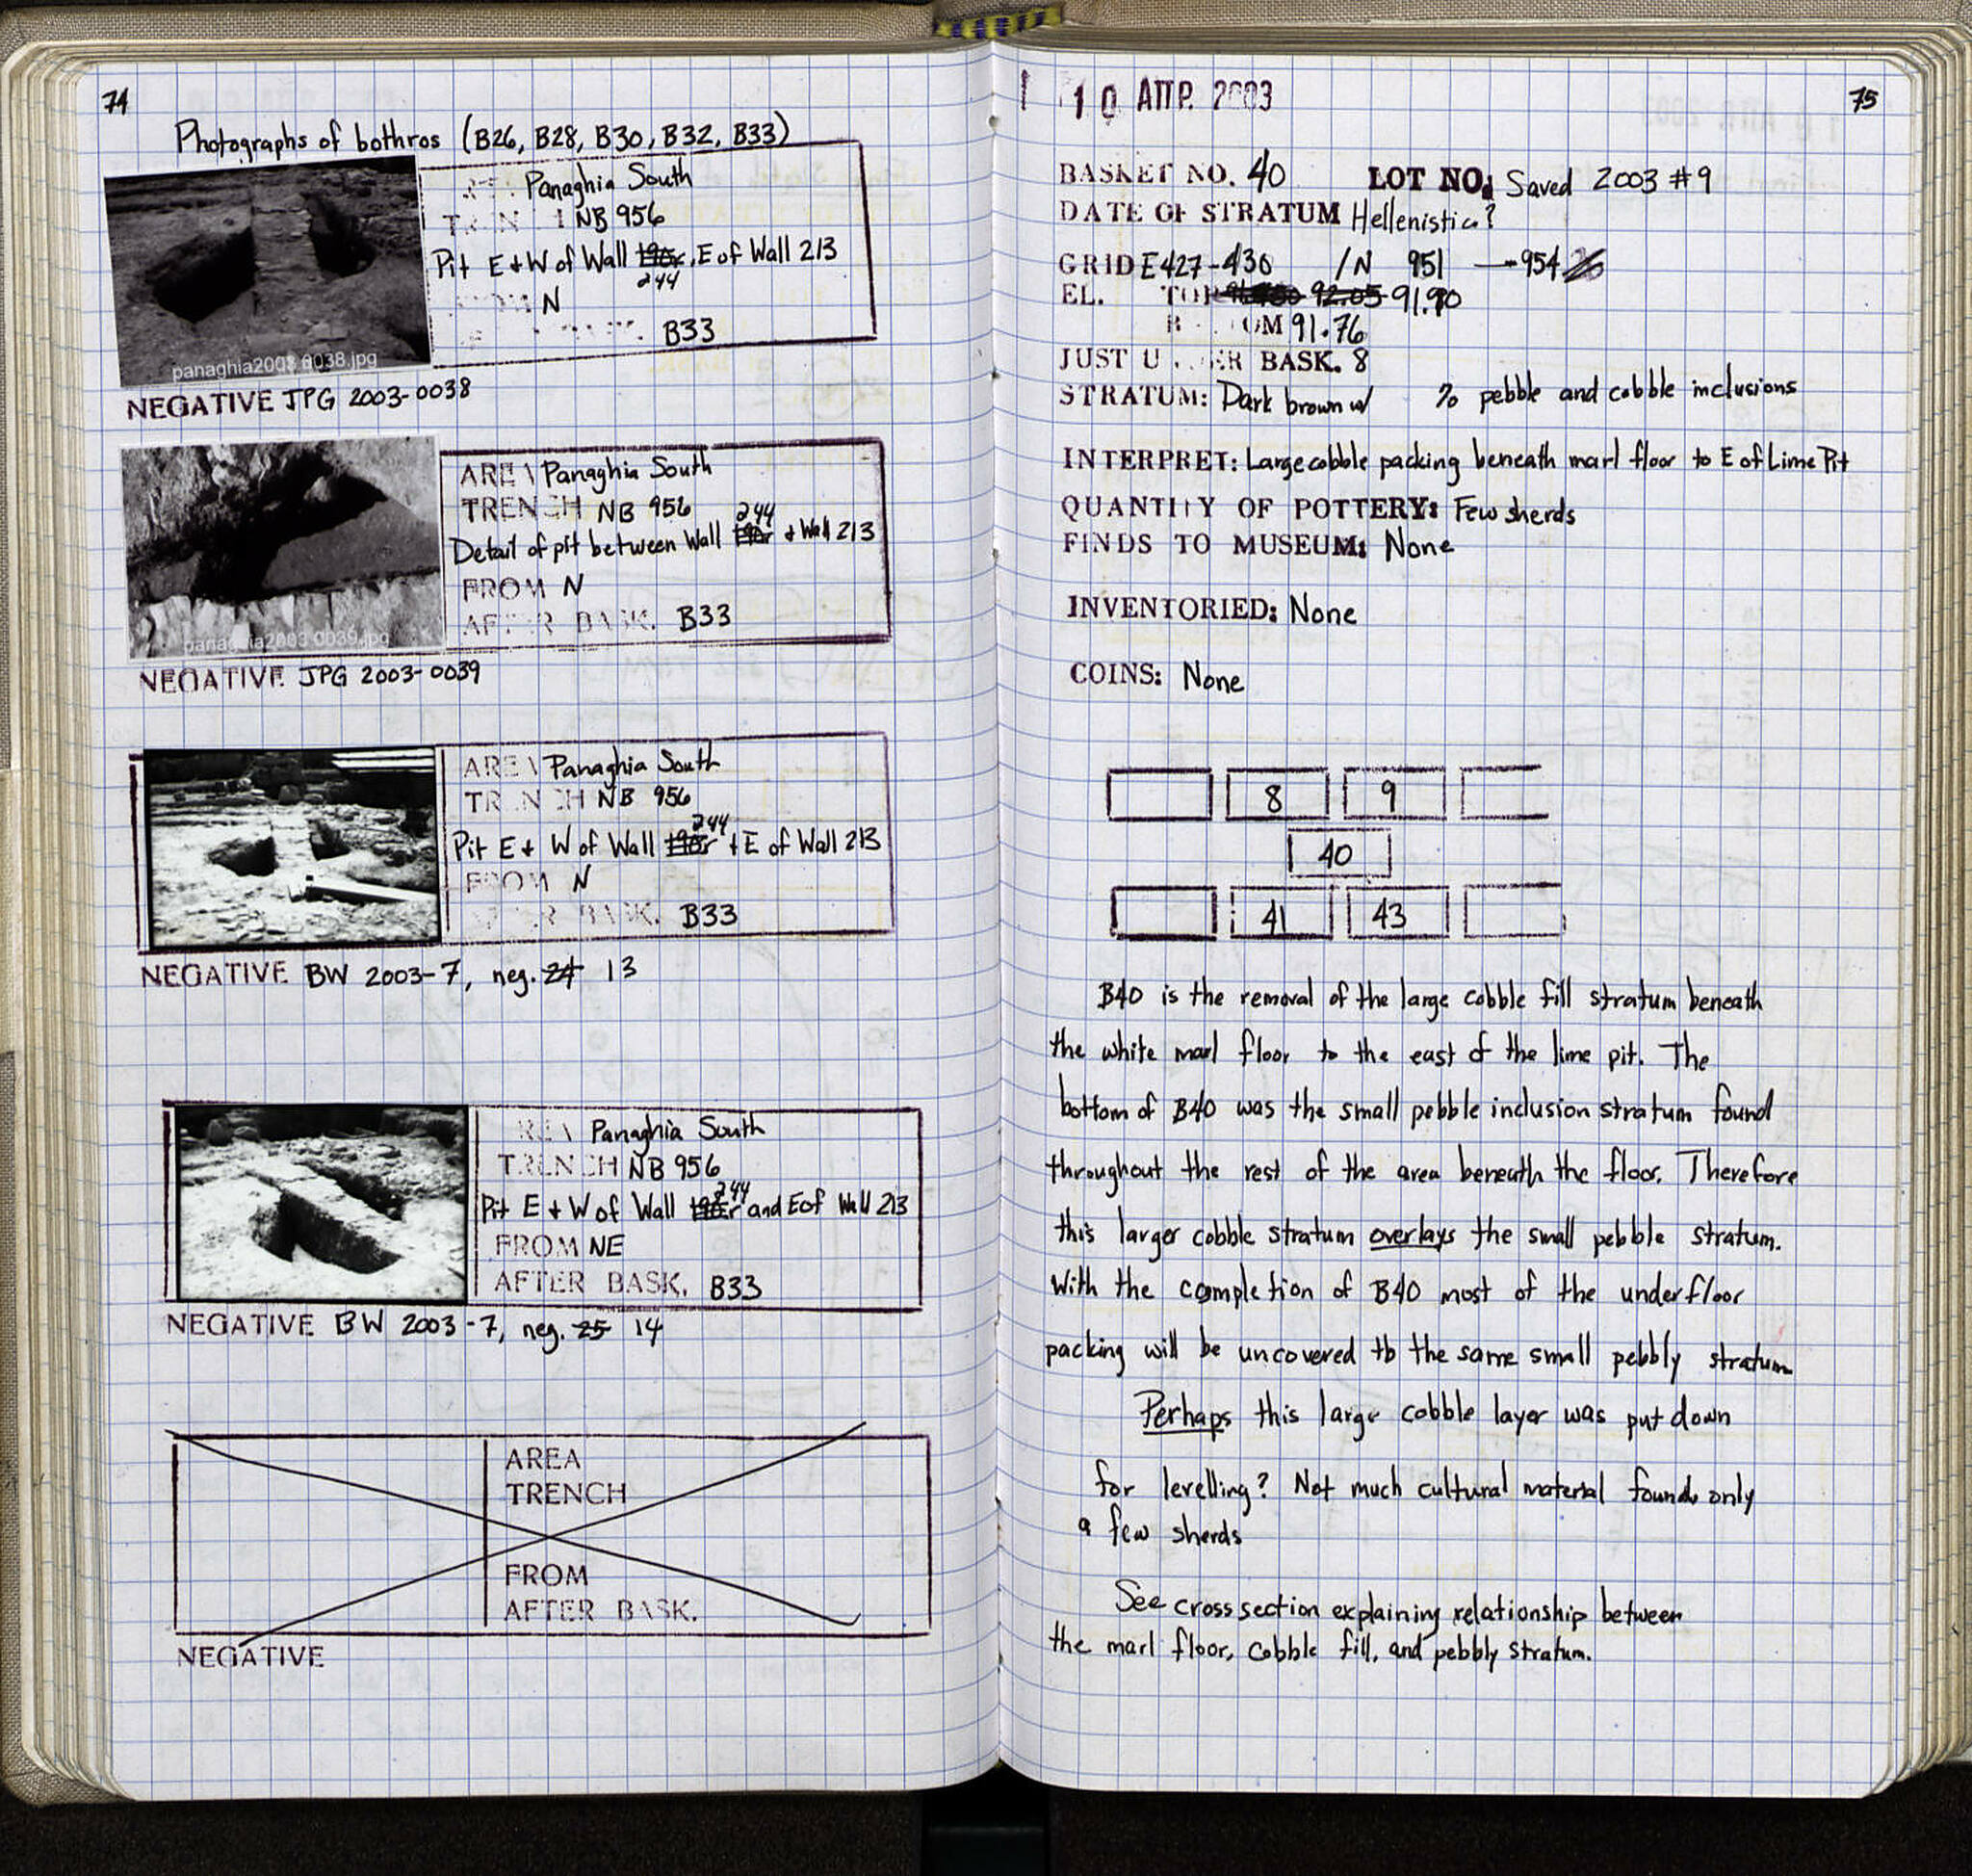 74
Photographs of bothros (B26, B28, B30, B32, B33)
Panaghia South
NB 956
Pit E + W of Wall 244, E of Wall 213
N
B33
panaghia2003 0038.jpg
NEGATIVE JPG 2003-0038
AREA Panaghia South
TRENCH NB 956
Detail of pit between Wall 244 + Wall 213
FROM N
AFTER BASK. B33
panaghia2003 0039.jpg
NEGATIVE JPG 2003-0039
AREA Panaghia South
TRENCH NB 956
Pit E + W of Wall 244 + E of Wall 213
FROM N
AFTER BASK. B33
NEGATIVE BW 2003-7, neg. 24 13
AREA Panaghia South
TRENCH NB 956
Pit E + W of Wall 244 and E of Wall 213
FROM NE
AFTER BASK. B33
NEGATIVE BW 2003-7, neg. 25 14
AREA
TRENCH
FROM
AFTER BASK.
NEGATIVE
10 ΑΠΡ. 2003
75
BASKET NO. 40 LOT NO. Saved 2003 #9
DATE OF STRATUM Hellenistic?
GRID E427-430 /N 951 - 954
EL. TOP 92.05 91.90
BOTTOM 91.76
JUST UNDER BASK. 8
STRATUM: Dark brown w/ % pebble and cobble inclusions
INTERPRET: Large cobble packing beneath marl floor to E of Lime Pit
QUANTITY OF POTTERY: Few sherds
FINDS TO MUSEUM: None
INVENTORIED: None
COINS: None
8 9
40
41 43
B40 is the removal of the large cobble fill stratum beneath
the white marl floor to the east of the lime pit. The
bottom of B40 was the small pebble inclusion stratum found
throughout the rest of the area beneath the floor. Therefore
this larger cobble stratum overlays the small pebble stratum.
With the completion of B40 most of the underfloor
packing will be uncovered to the same small pebbly stratum
Perhaps this large cobble layer was put down
for levelling? Not much cultural material found, only
a few sherds
See cross section explaining relationship between
the marl floor, cobble fill, and pebbly stratum.